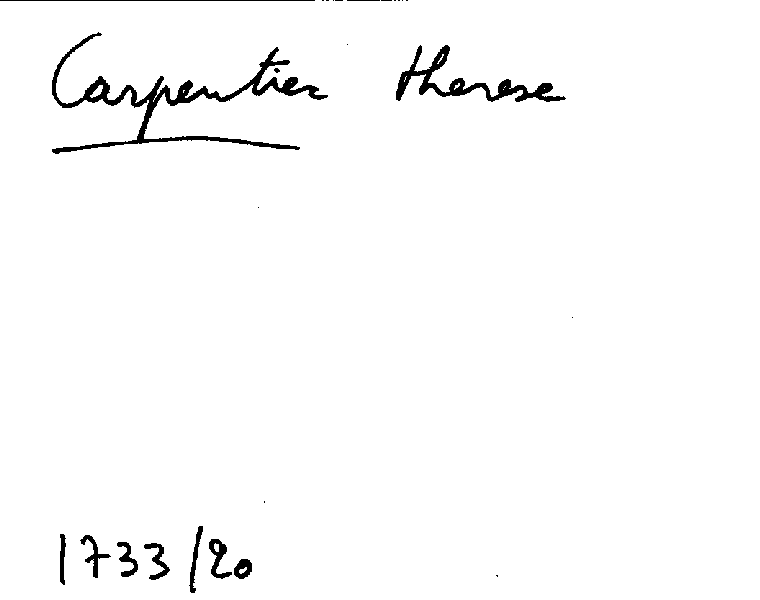 Carpentier therese
1733/20